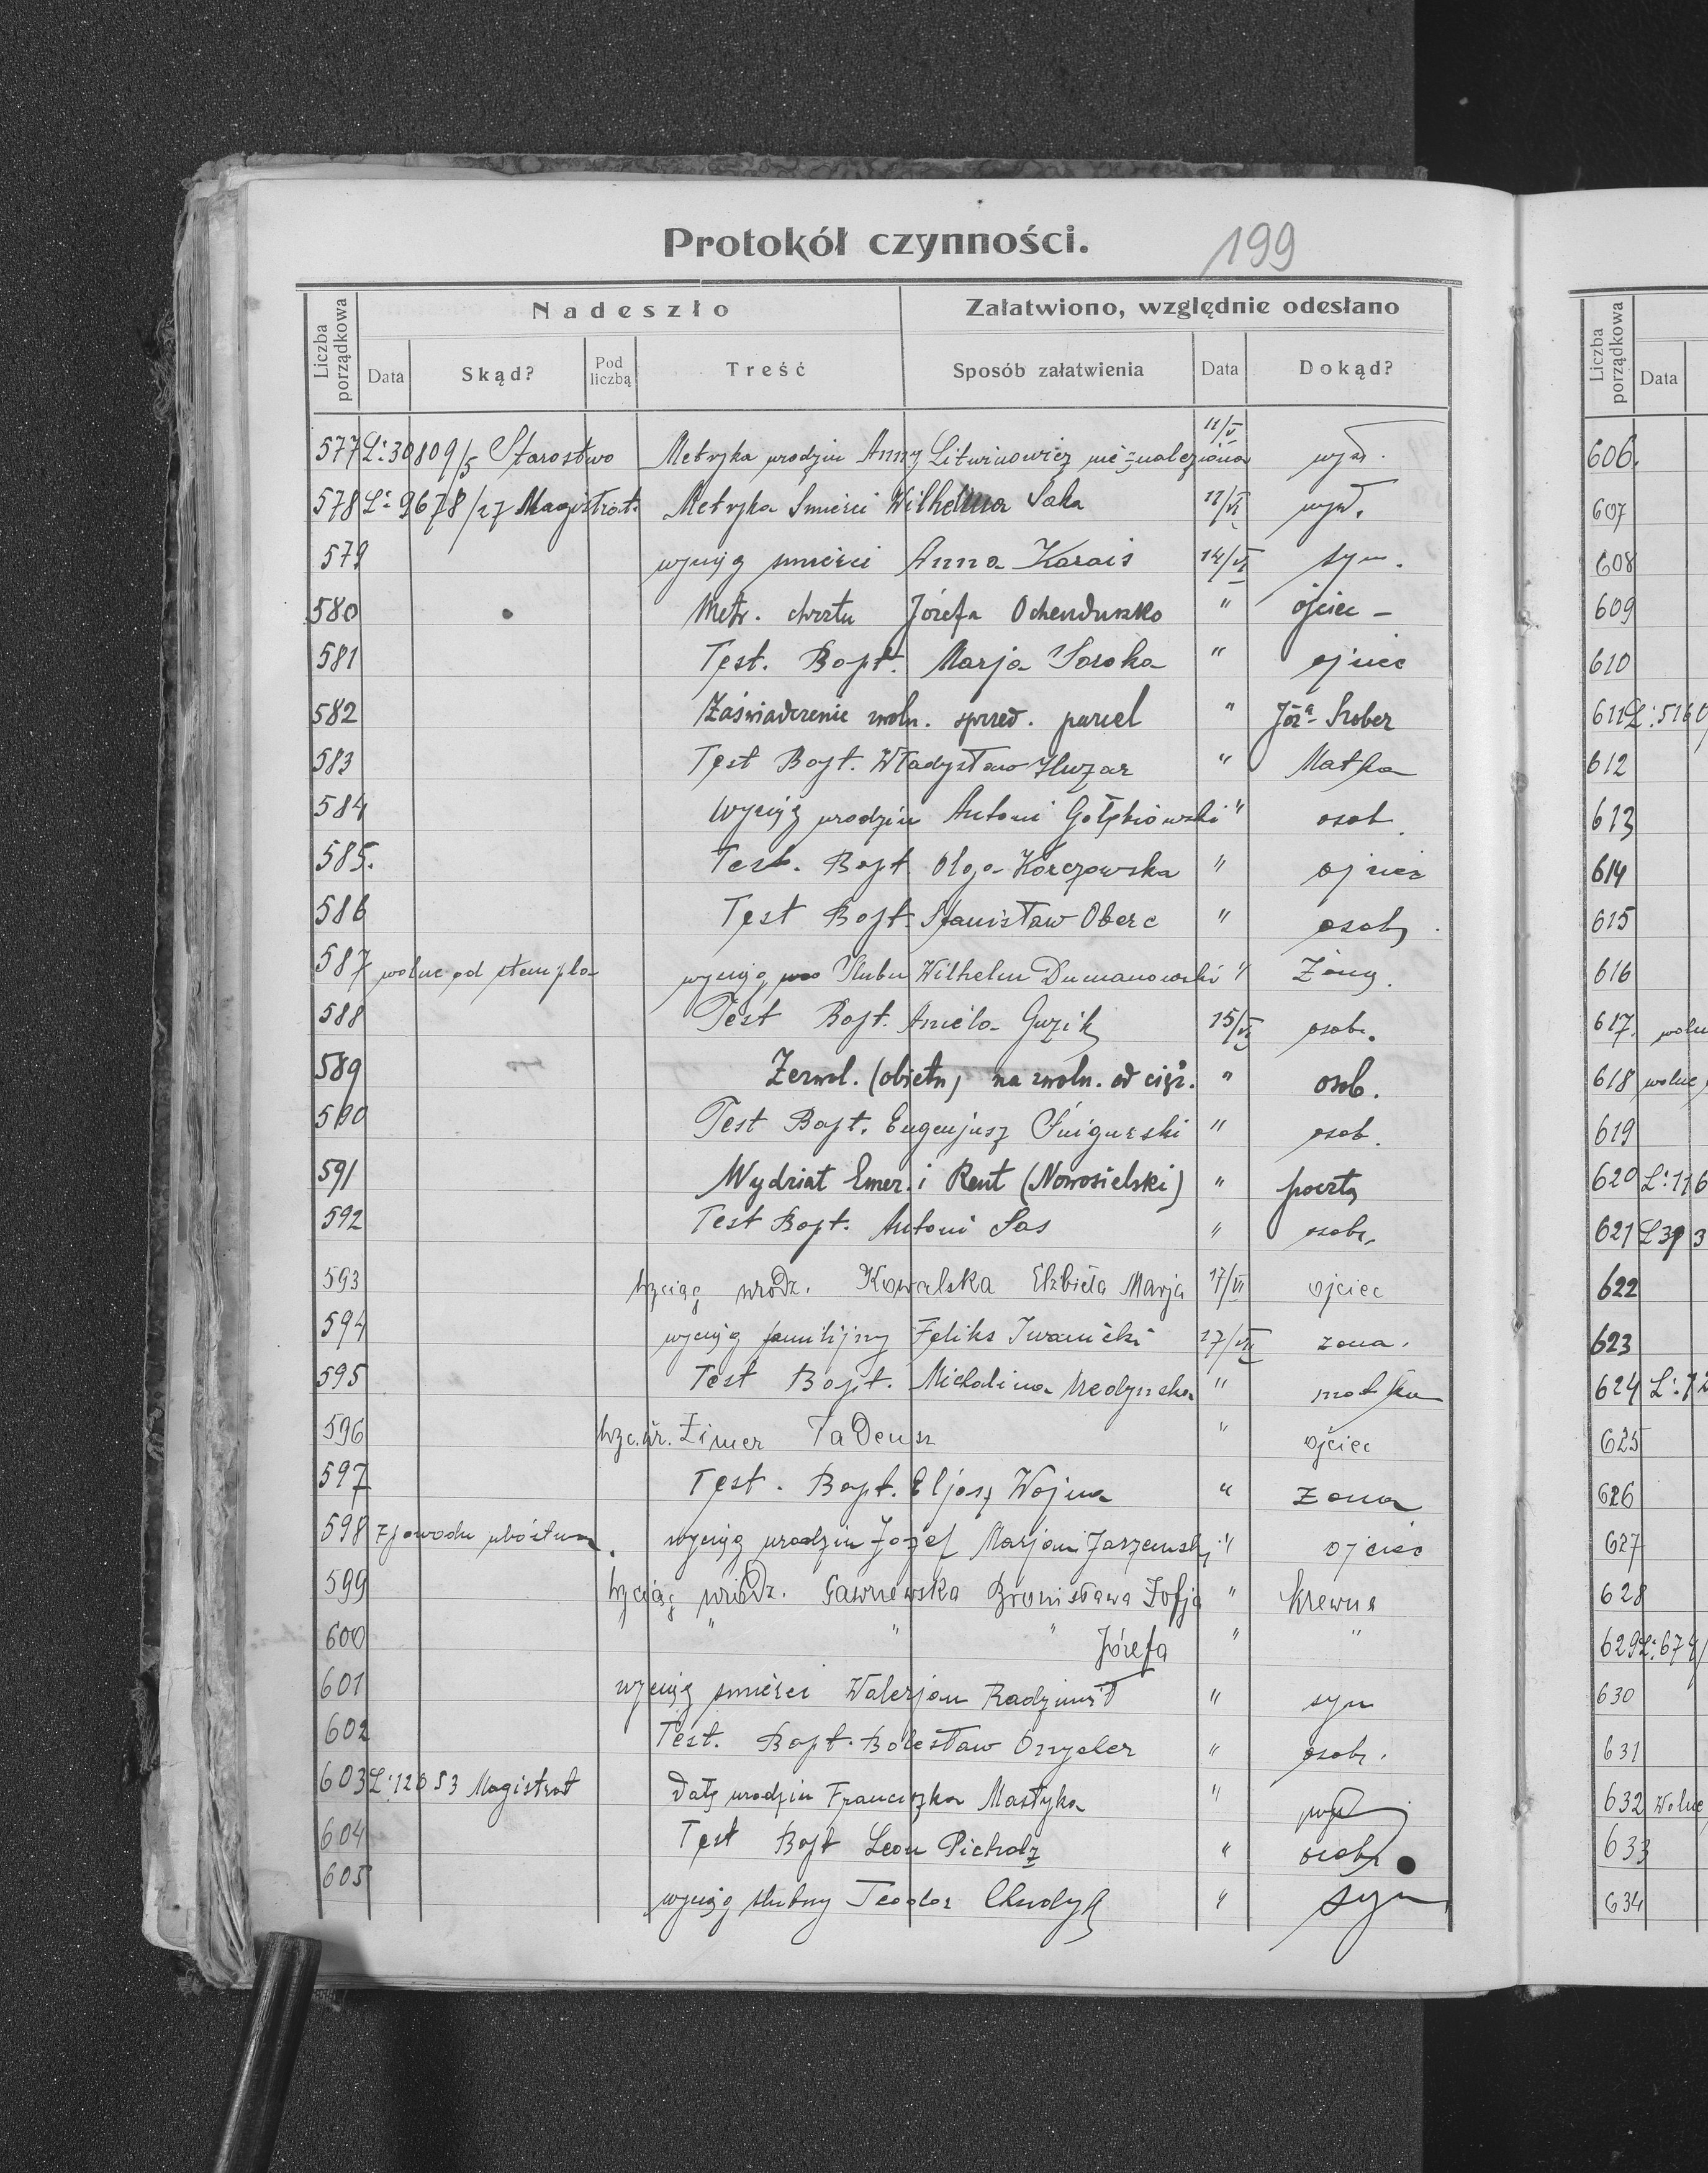 Protokół czynności.
199
Liczba porządkowa
Nadeszło
Załatwiono, względnie odesłano
Data
Skąd?
Pod liczbą
Treść
Sposób załatwienia
Data
Dokąd?
577 L: 30809/5 Starostwo Metryka urodzin Anny Litwinowicz nie znaleziona 11/V
578 L: 9678/27 Magistrat. Metryka Smierci Wilhelma Saka 11/VI
579 wyciąg smierci Anna Karais 14/VI syn.
580 Metr. chrztu Józefa Ochenduszko " ojciec –
581 Test. Bapt. Marja Soroka " ojciec
582 Zaświadczenie zwoln. sprzed. parcel " Józ. Szober
583 Test Bapt. Władysław Huzar " Matka
584 Wyciąg urodzin Antoni Gołębiowski " osob.
585. Test. Bapt Olga Korczowska " ojciec
586 Test Bapt. Stanisław Oberc " osob
587 wolne od stempla wyciąg slubu Wilhelm Dumanowski " Żony.
588 Test Bapt. Aniela Guzik 15/VI osob.
589 Zezwol. (obietn) na zwoln. od cięż. " osob.
590 Test Bapt. Eugenjusz Śnigurski " osob.
591 Wydział Emer. i Rent (Nowosielski) " pocztą
592 Test Bapt. Antoni Sas " osob.
593 Wyciąg urodz. Kowalska Elżbieta Marja 17/VI ojciec
594 wyciąg familijny Feliks Iwanicki 17/VI zona.
595 Test Bapt. Michalina Medynska " matka
596 Wyc. ur. Zimer Tadeusz " ojciec
597 Test. Bapt. Eljasz Wojna " zona
598 Z powodu ubóstwa. wyciąg urodzin Józef Marjan Jarzemski " ojciec
599 Wyciąg urodz. Gawrewska Bronisława Zofja " krewna
600 " " " Józefa " "
601 wyciąg smierci Walerjan Radzimił " syn
602 Test. Bapt. Bolesław " osob.
603 L: 12053 Magistrat Datę urodzin Franciszka Mastyka "
604 Test Bapt Leon Picholz " osob.
605 wyciąg slubny Teodor Chudyk " syn
Liczba porządkowa
Data
606.
607
608
609
610
611 L: 5160
612
613
614
615
616
617.
618 wolne
619
620 L: 116
621 L 39 3
622
623
624 L: 12
625
626
627
628
629 L: 674/
630
631
632 Wolne
633
634